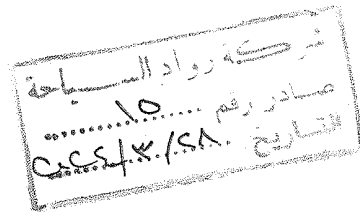 شركة رواد السياحة
صادر رقم ١٥
التاريخ ٢٠٢٤/٣/٢٨